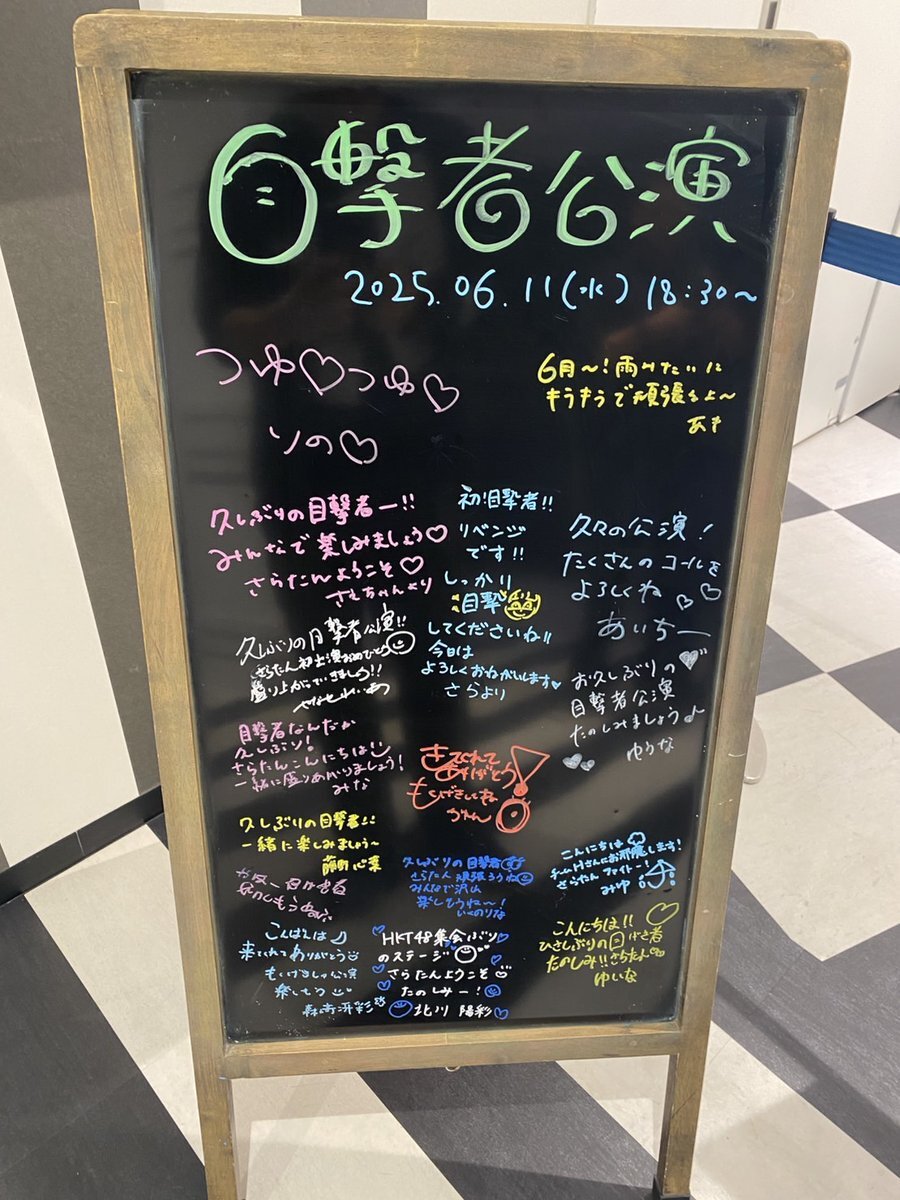 目撃者公演
2025.06.11(水) 18:30~
つゆ♡つゆ♡
りの♡
6月〜!雨みたいに
キラキラで頑張るよ〜
あき
久しぶりの目撃者ー!!
みんなで楽しみましょう♡
さらたんようこそ♡
さえちゃんより
初!目撃者!!
リベンジ
です!!
しっかり
目撃
してくださいね!!
今日は
よろしくおねがいします♡
さらより
久々の公演!
たくさんのコールを
よろしくね♡♡
あいちー
久しぶりの目撃者公演!!
さらたん初出演おめでとう
盛り上がっていきましょう!!
お久しぶりの♡
目撃者公演
たのしみましょう♪
ゆうな
目撃者なんだか
久しぶり!
さらたんこんにちは
一緒に盛りあがりましょう!
みな
きてくれて
ありがとう!
もくげきしてね
久しぶりの目撃者!!
一緒に楽しみましょう~
藤野心葉
久しぶりの目撃者
さらたん頑張ろうね
みんなで沢山
楽しもうね〜!
いくのりな
こんにちは
チームHさんにお邪魔します!
さらたん ファイトー!
みゆ
こんばんは♪
来てくれてありがとう
もくげきしゃ公演
楽しもう
HKT48集会ぶり
のステージ
さらたんようこそ
たのしみー!
北川 陽彩♡
こんにちは!!
ひさしぶりの目げき者
たのしみ!!さらたん
ゆいな